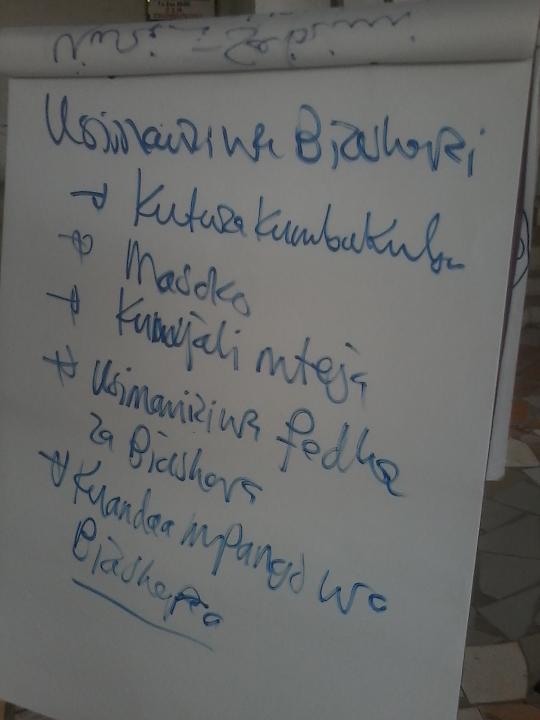 Usimamizi wa Biashara
Kutunza Kumbukumbu
Masoko
Kumjali mteja
Usimamizi wa fedha
za Biashara
Kuandaa mpango wa
Biashara